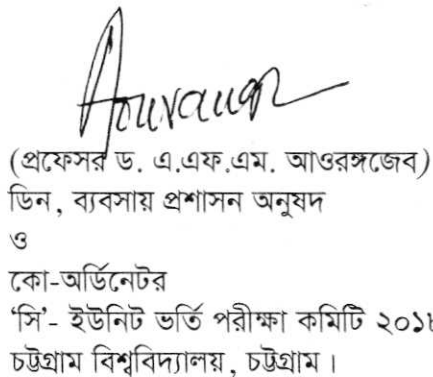 (প্রফেসর ড. এ.এফ.এম. আওরঙ্গজেব)
ডিন, ব্যবসায় প্রশাসন অনুষদ
ও
কো-অর্ডিনেটর
‘সি’- ইউনিট ভর্তি পরীক্ষা কমিটি
চট্টগ্রাম বিশ্ববিদ্যালয়, চট্টগ্রাম।